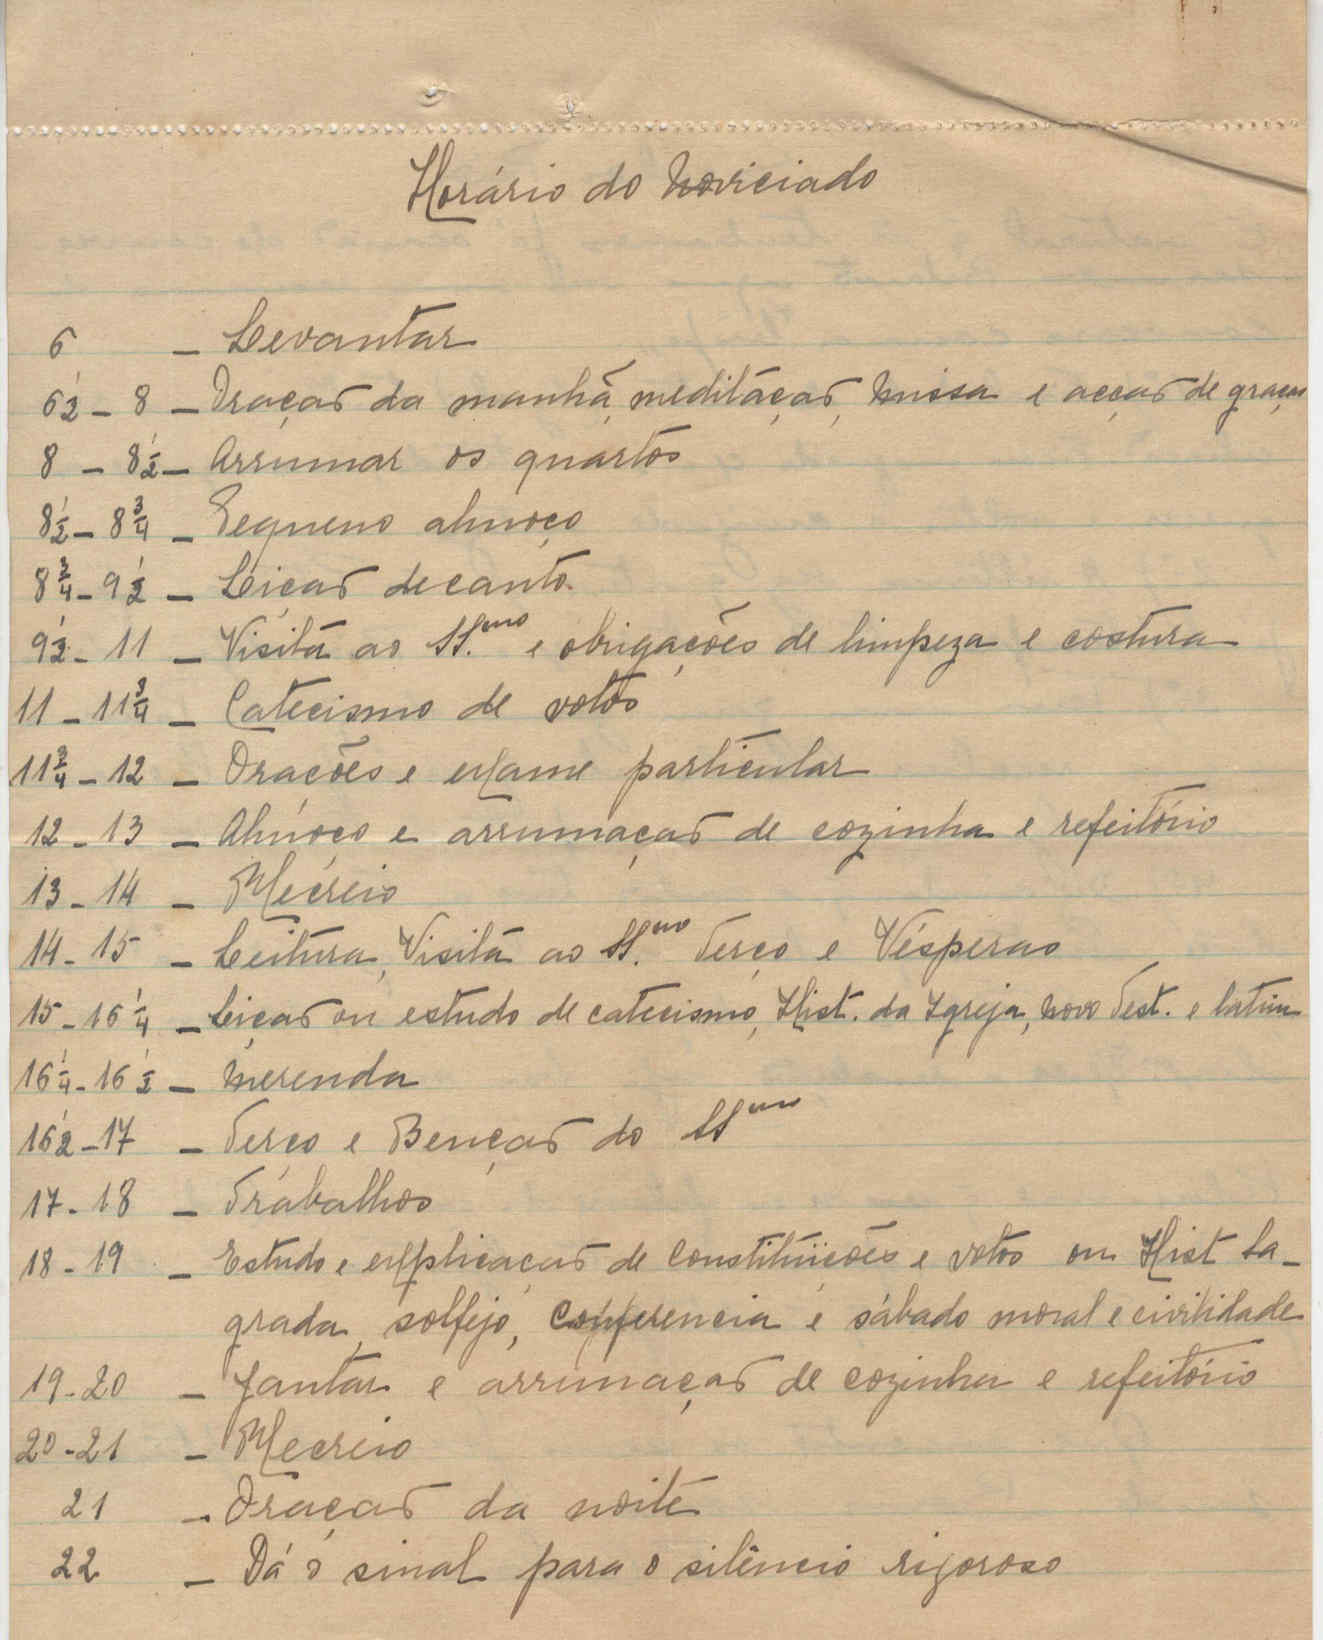 Horário do Noviciado
6 - Levantar
6½ - 8 - Oração da manhã, meditação, Missa e acção de graças
8 - 8½ - Arrumar os quartos
8½ - 8¾ - Pequeno almoço
8¾ - 9½ - Lição de canto.
9½ - 11 - Visita ao SS.mo e obrigações de limpeza e costura
11 - 11¾ - Catecismo de votos
11¾ - 12 - Orações e exame particular
12 - 13 - Almoço e arrumação de cozinha e refeitório
13 - 14 - Recreio
14 - 15 - Leitura, Visita ao SS.mo Terço e Vésperas
15 - 16¼ - Lição ou estudo de catecismo, Hist. da Igreja, Novo Test. e latim
16¼ - 16½ - Merenda
16½ - 17 - Terço e Benção do SSmo
17 - 18 - Trabalhos
18 - 19 - Estudo e explicação de Constituições e votos ou Hist Sa-
grada, solfejo, Conferencia e sábado moral e civilidade
19 - 20 - Jantar e arrumação de cozinha e refeitório
20 - 21 - Recreio
21 - Oração da noite
22 - Dá o sinal para o silêncio rigoroso